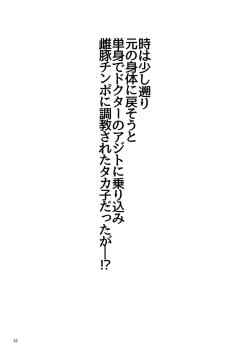 時は少し遡り
元の身体に戻そうと
単身でドクターのアジトに乗り込み
雌豚チンポに調教されたタカ子だったが―!?